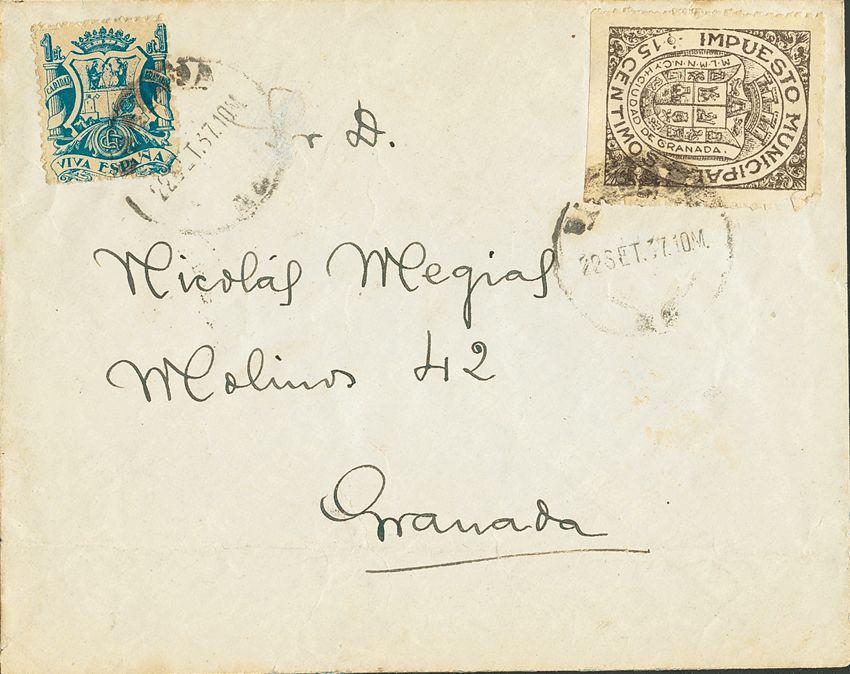 1 ct. ct. 1
CARIDAD
VIVA ESPAÑA
IMPUESTO MUNICIPAL
15 CENTIMOS
M.L.M.N.C.Y.H. CIUDAD DE GRANADA.
22 SET. 37. 10M.
22 SET. 37. 10M.
r D.
Nicolás Megias
Molinos 42
Granada